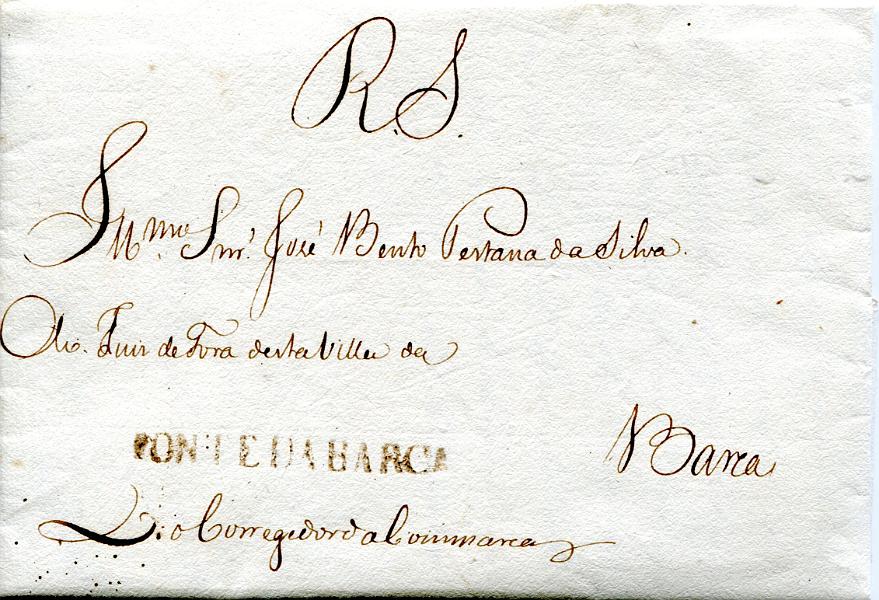 R. S.
Illmo Snr. José Bento Pestana da Silva.
Juiz de Fora desta Villa da
Barca
PONTE DA BARCA
D. o Corregedor da Commarca